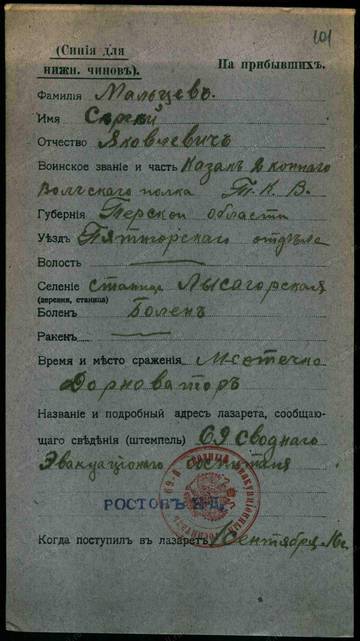 101
(Синія для
нижн. чиновъ).
На прибывшихъ.
Фамилія Мальцевъ.
Имя Сергѣй
Отчество Яковлевичъ
Воинское званіе и часть Казакъ 2 коннаго
Волгскаго полка Т. К. В.
Губернія Терской области
Уѣздъ Пятигорскаго отдѣла
Волость
Селеніе станица Лысогорская
(деревня, станица)
Боленъ Боленъ
Раненъ
Время и мѣсто сраженія Местечко
Дорноваторъ
Названіе и подробный адресъ лазарета, сообщаю-
щаго свѣдѣнія (штемпель) 69 своднаго
Эвакуаціонаго госпиталя
РОСТОВЪ Н-Д.
Когда поступилъ въ лазаретъ 1 Сентября 16 г.